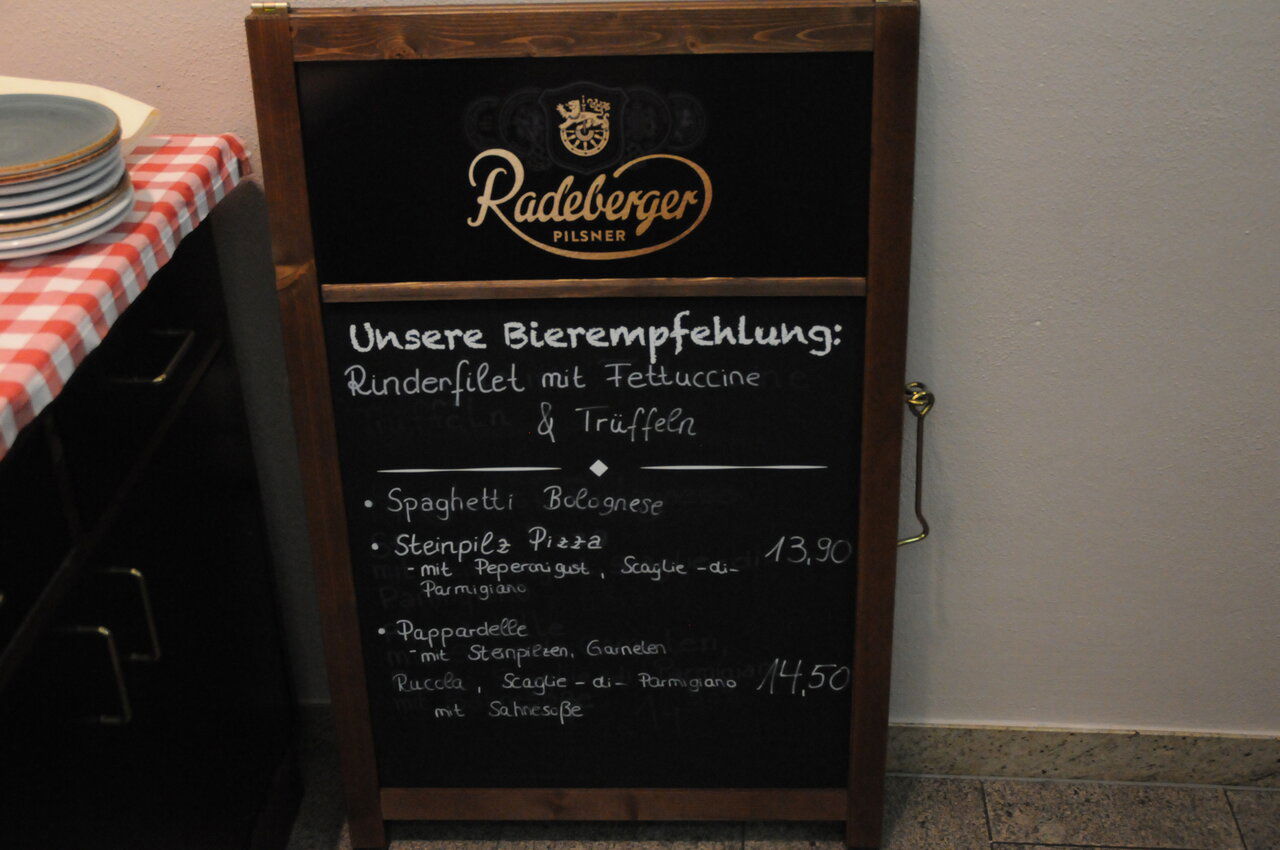 Radeberger
PILSNER
Unsere Bierempfehlung:
Rinderfilet mit Fettuccine
& Trüffeln
• Spaghetti Bolognese
• Steinpilz Pizza 13,90
- mit Peperonigust, Scaglie-di-
Parmigiano
• Pappardelle
- mit Steinpilzen, Garnelen
Rucola, Scaglie-di-Parmigiano 14,50
mit Sahnesoße